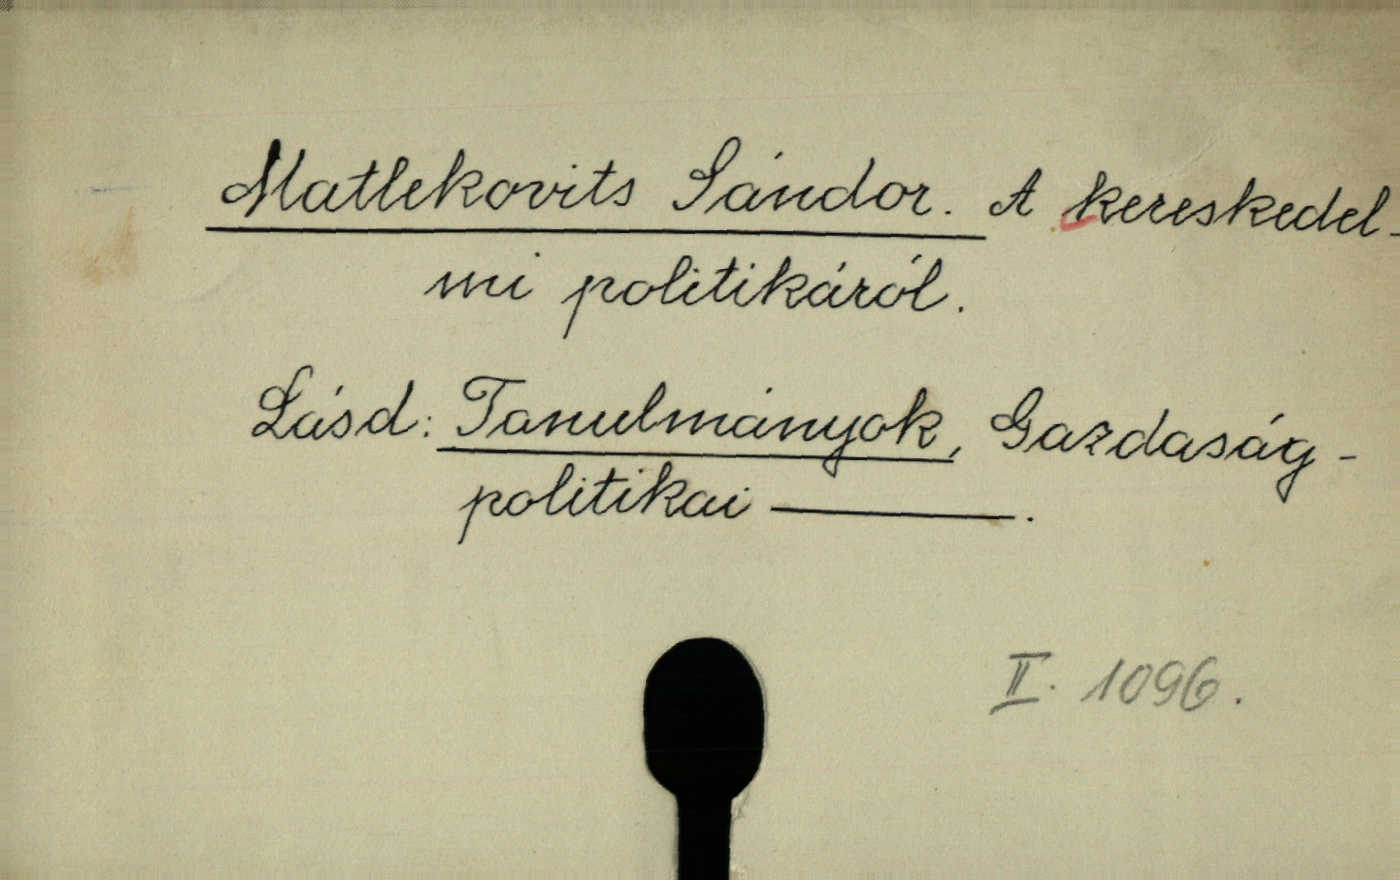 Matlekovits Sándor. A kereskedel-
mi politikáról.
Lásd: Tanulmányok, Gazdaság-
politikai ———.
II. 1096.